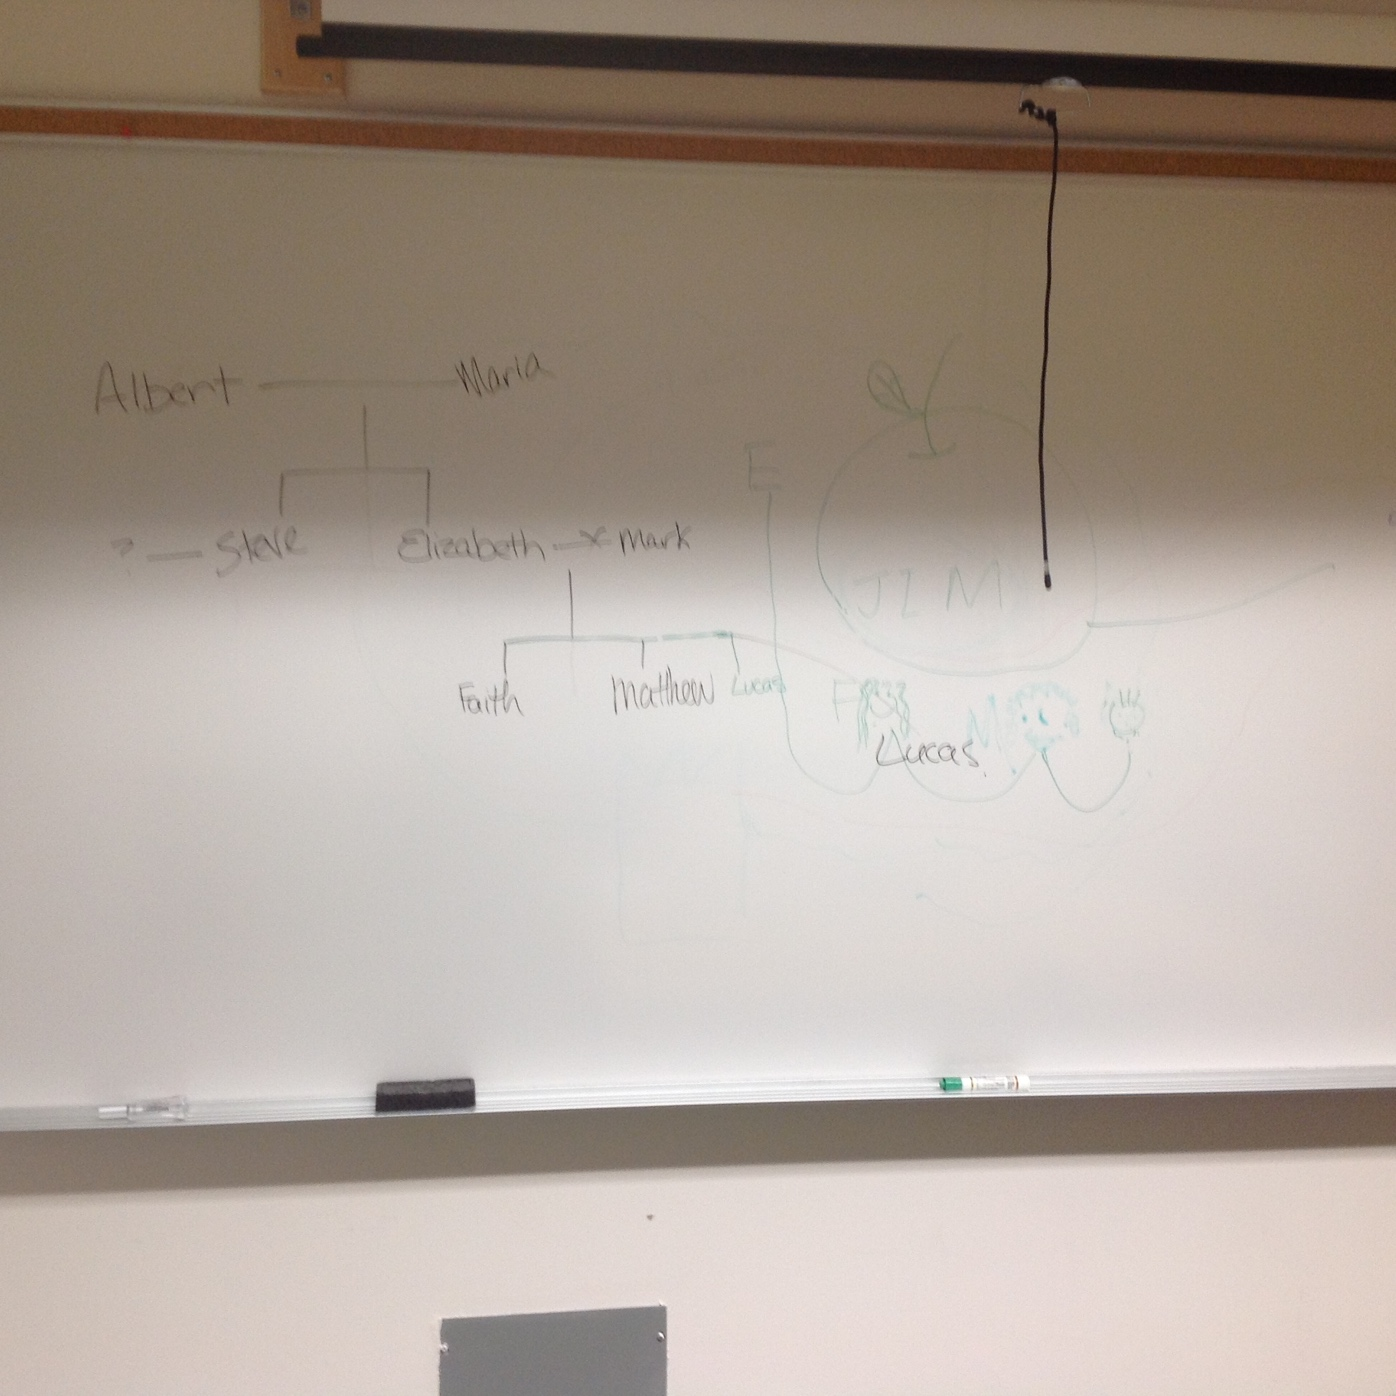 Albert Maria
E
? Steve Elizabeth x Mark
JIM
Faith Matthew Lucas F M
Lucas